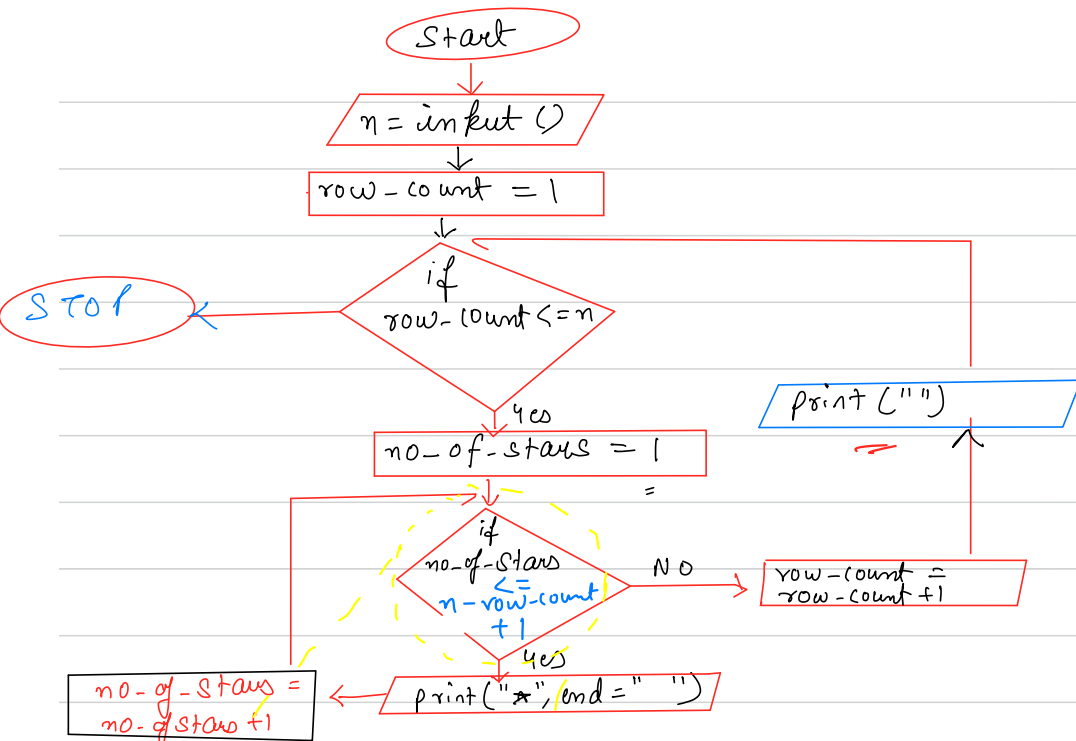 Start
n = input ()
row-count = 1
if
row-count <= n
STOP
Yes
no-of-stars = 1
=
print ("")
if
no-of-stars
<=
n-row-count
+1
NO
row-count =
row-count +1
Yes
print("*", end=" ")
no-of-stars =
no-of stars +1